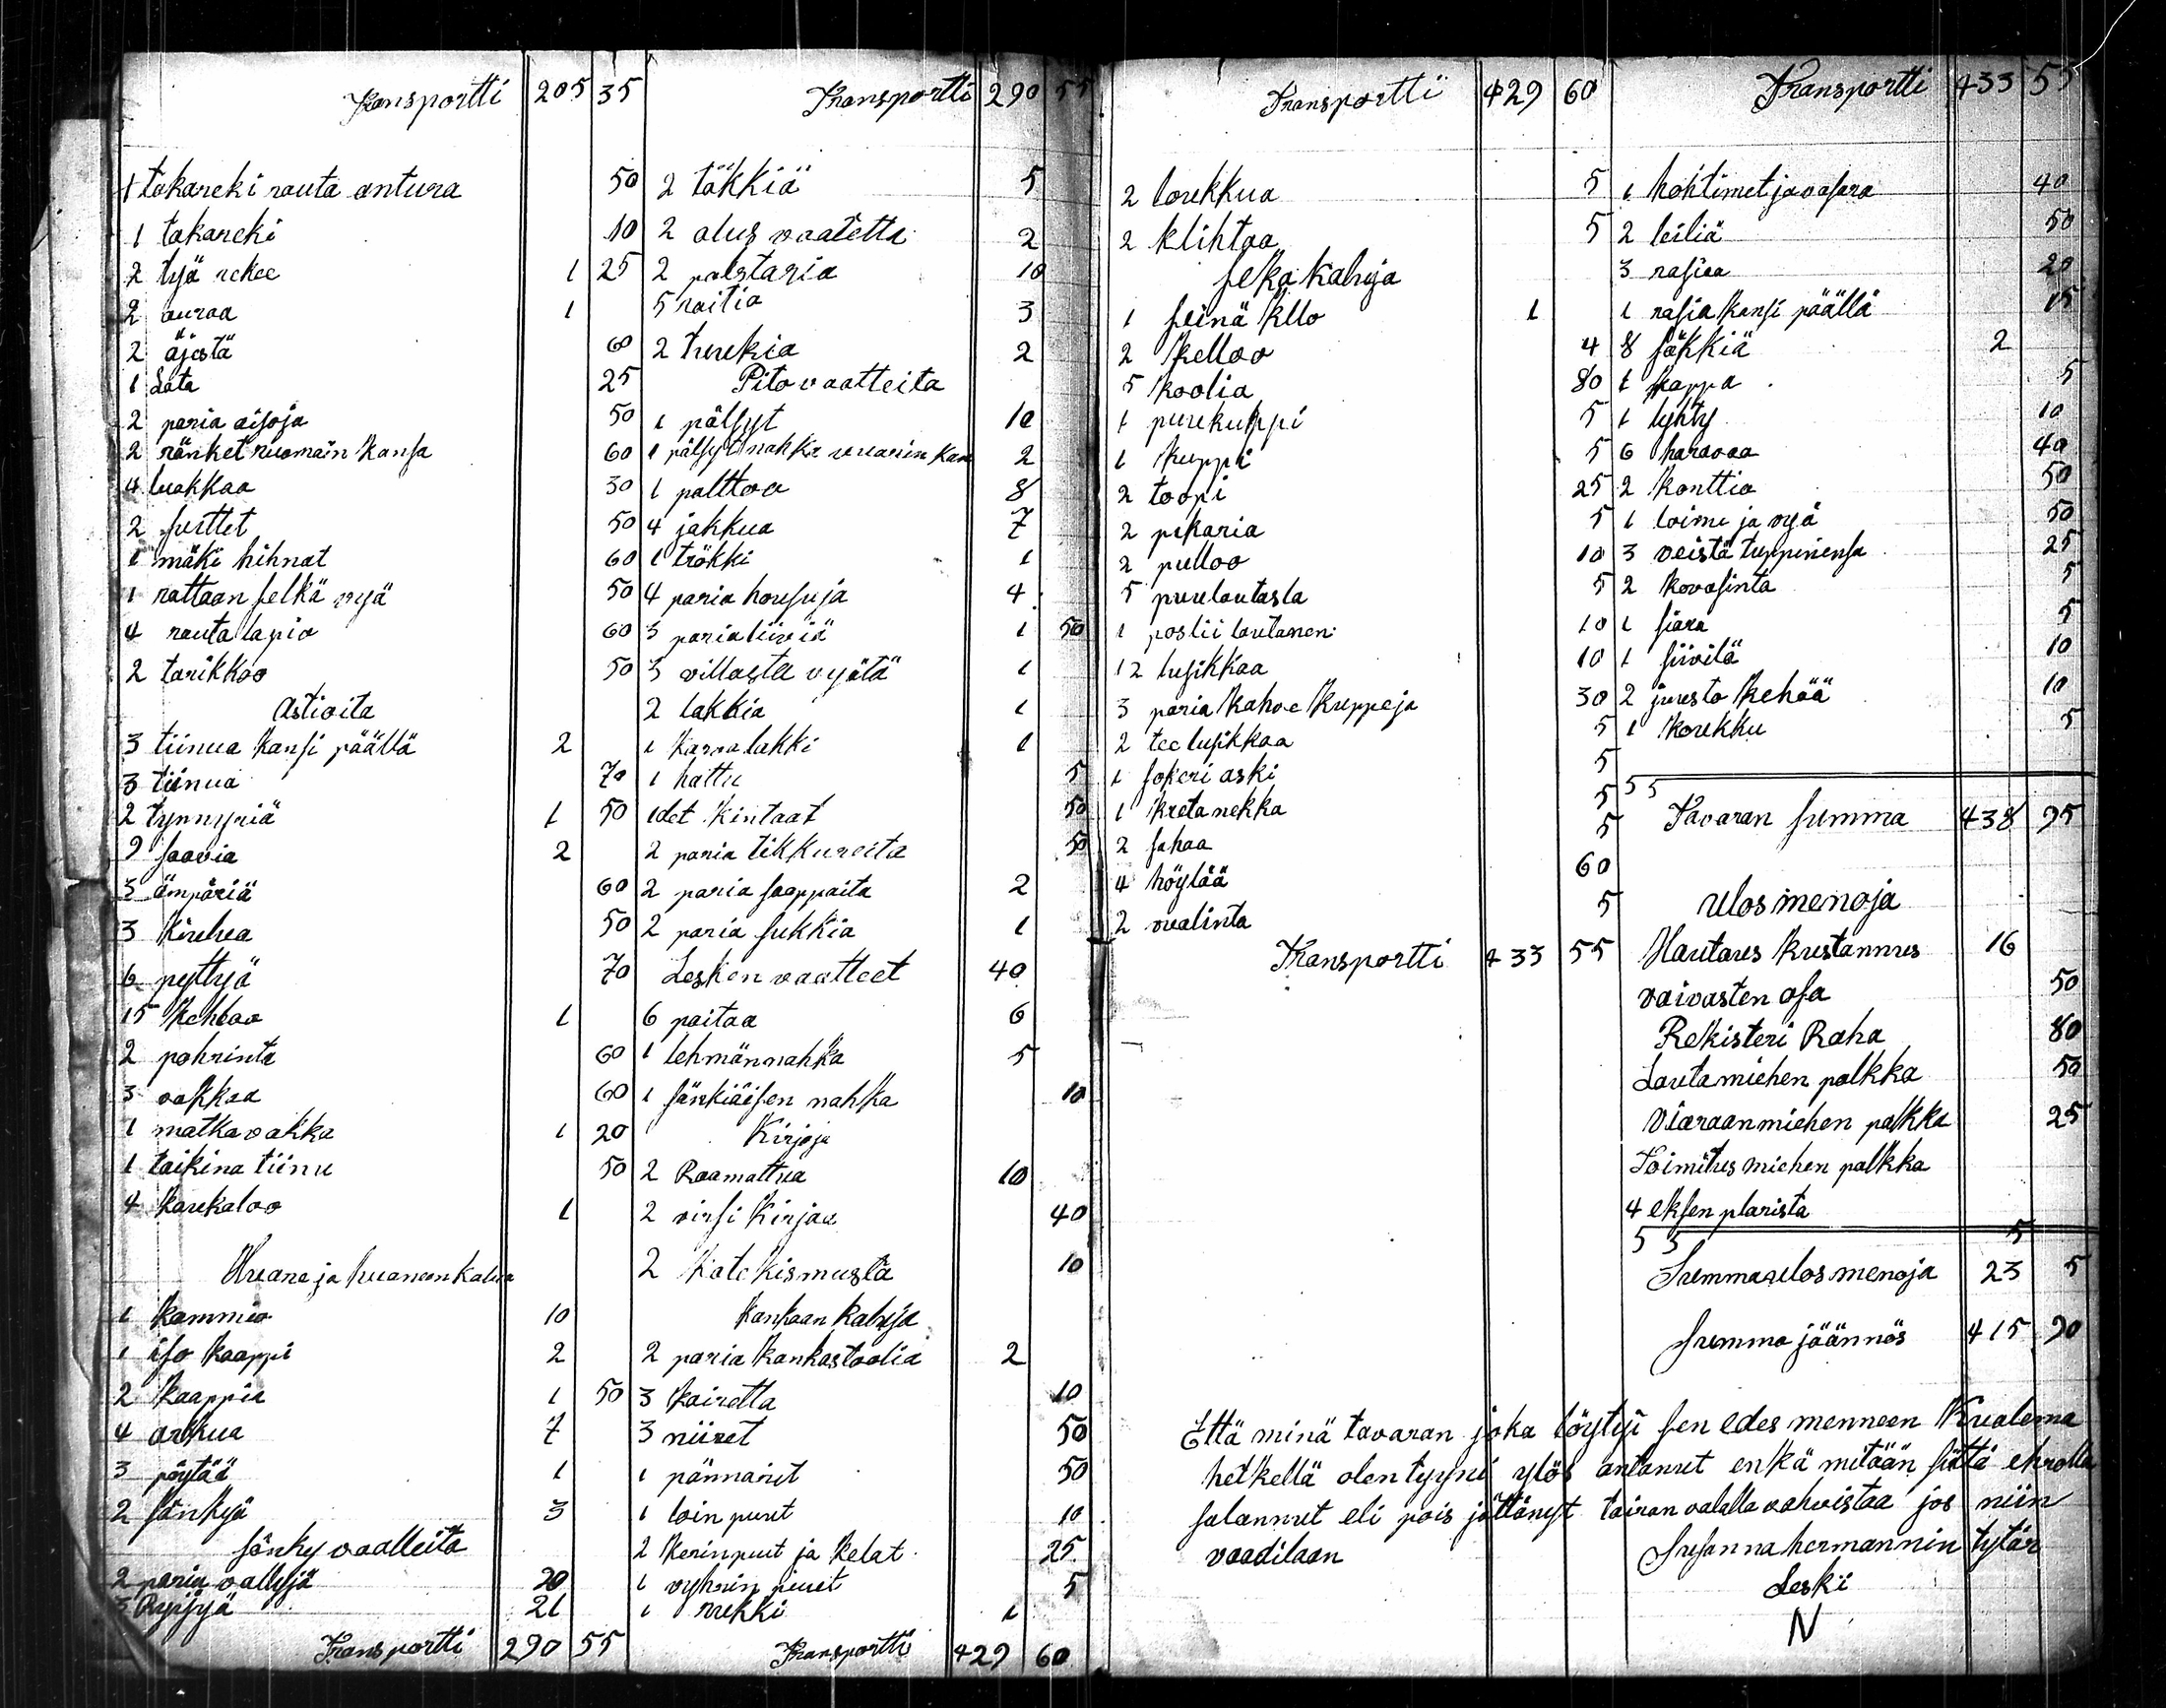 Transportti 205 35
1 takareki rauta antura 50
1 takareki 10
2 työ rekee 1 25
2 auraa 1
2 äjestä 60
1 Lata 25
2 paria aisoja 50
2 ränket ruomain kansa 60
4 luakkaa 30
2 suittet 50
1 mäki hihnat 60
1 rattaan selkä vyä 50
4 rauta lapio 60
2 tarikkoo 50
Astioita
3 tiinua kansi päällä 2
3 tiinua 70
2 tynnyriä 1 50
9 saavia 2
3 ämpäriä 60
3 kiulua 50
6 pyttyä 70
15 kehloo 1
2 pohrinta 60
3 vakkaa 60
1 matka vakka 1 20
1 taikina tiinu 50
4 kaukaloo 1
Huane ja huaneen kalua
1 kammio 10
1 iso kaappi 2
2 kaappia 1 50
4 arkkua 7
3 pöytää 1
2 sänkyä 3
sänky vaatteita
2 paria vällyjä 20
3 Ryijyä 21
Transportti 290 55
Transportti 290 55
2 täkkiä 5
2 alus vaatetta 2
2 polstaria 10
5 raitia 3
2 turekia 2
Pito vaatteita
1 pälsyt 10
1 pälsyt nahka vuarin kan 2
1 palttoo 8
4 jakkua 7
1 trökki 1
4 paria housuja 4
3 paria liiviä 1 50
3 villasta vyätä 1
2 lakkia 1
1 karva lakki 1
1 hattu 5
1det kintaat 50
2 paria tikkureita 50
2 paria saappaita 2
2 paria sukkia 1
Lesken vaatteet 40
6 paitaa 6
1 lehmännahka 5
1 sänkiäisen nahka 10
Kirjoja
2 Raamattua 10
2 virsi kirjaa 40
2 katekismusta 10
kankaan kaluja
2 paria kankastoolia 2
3 kairetta 10
3 niiret 50
1 pännairet 50
1 loin puut 10
2 kerinpuut ja kelat 25
1 vyhrin puut 5
1 rukki 1
Transportti 429 60
Transportti 429 60
2 loukkua 5
2 klihtaa 5
seka kaluja
1 seinä kllo 1
2 kelloo 4
5 koolia 80
1 purekuppi 5
1 kuppi 5
2 toopi 25
2 pikaria 5
2 pulloo 10
5 puulautasta 5
1 poslii lautanen 10
12 lusikkaa 10
3 paria kahve kuppeja 30
2 tee lusikkaa 5
1 sokeri aski 5
1 kreta nekka 5
2 sahaa 5
4 höylää 60
2 vualinta 5
Transportti 433 55
Transportti 433 55
1 hohtimet ja vasara 40
2 leiliä 50
3 rasiaa 20
1 rasia kansi päällä 15
8 säkkiä 2
1 kappa 5
1 lyhty 10
6 haravaa 40
2 konttia 50
1 loimi ja vyä 50
3 veistä tuppinensa 25
2 kovasinta 5
1 siara 5
1 siivilä 10
2 juusto kehää 10
1 koukku 5
5 5
Tavaran summa 438 95
Ulos menoja
Hautaus kustannus 16
vaivasten osa 50
Rekisteri Raha 80
Lautamiehen palkka 50
Viaraanmiehen palkka 25
Toimitus miehen palkka
4 eksenplarista 5
5 5
Summa ulos menoja 23 5
Summa jäännös 415 90
Että minä tavaran joka löytyi sen edes menneen Kualema
hetkellä olen tyyni ylös antanut enkä mitään siittä ehrolla
salannut eli pois jättänyt tairan valalla vahvistaa jos niin
vaadilaan Susanna hermannin tytär
Leski
N